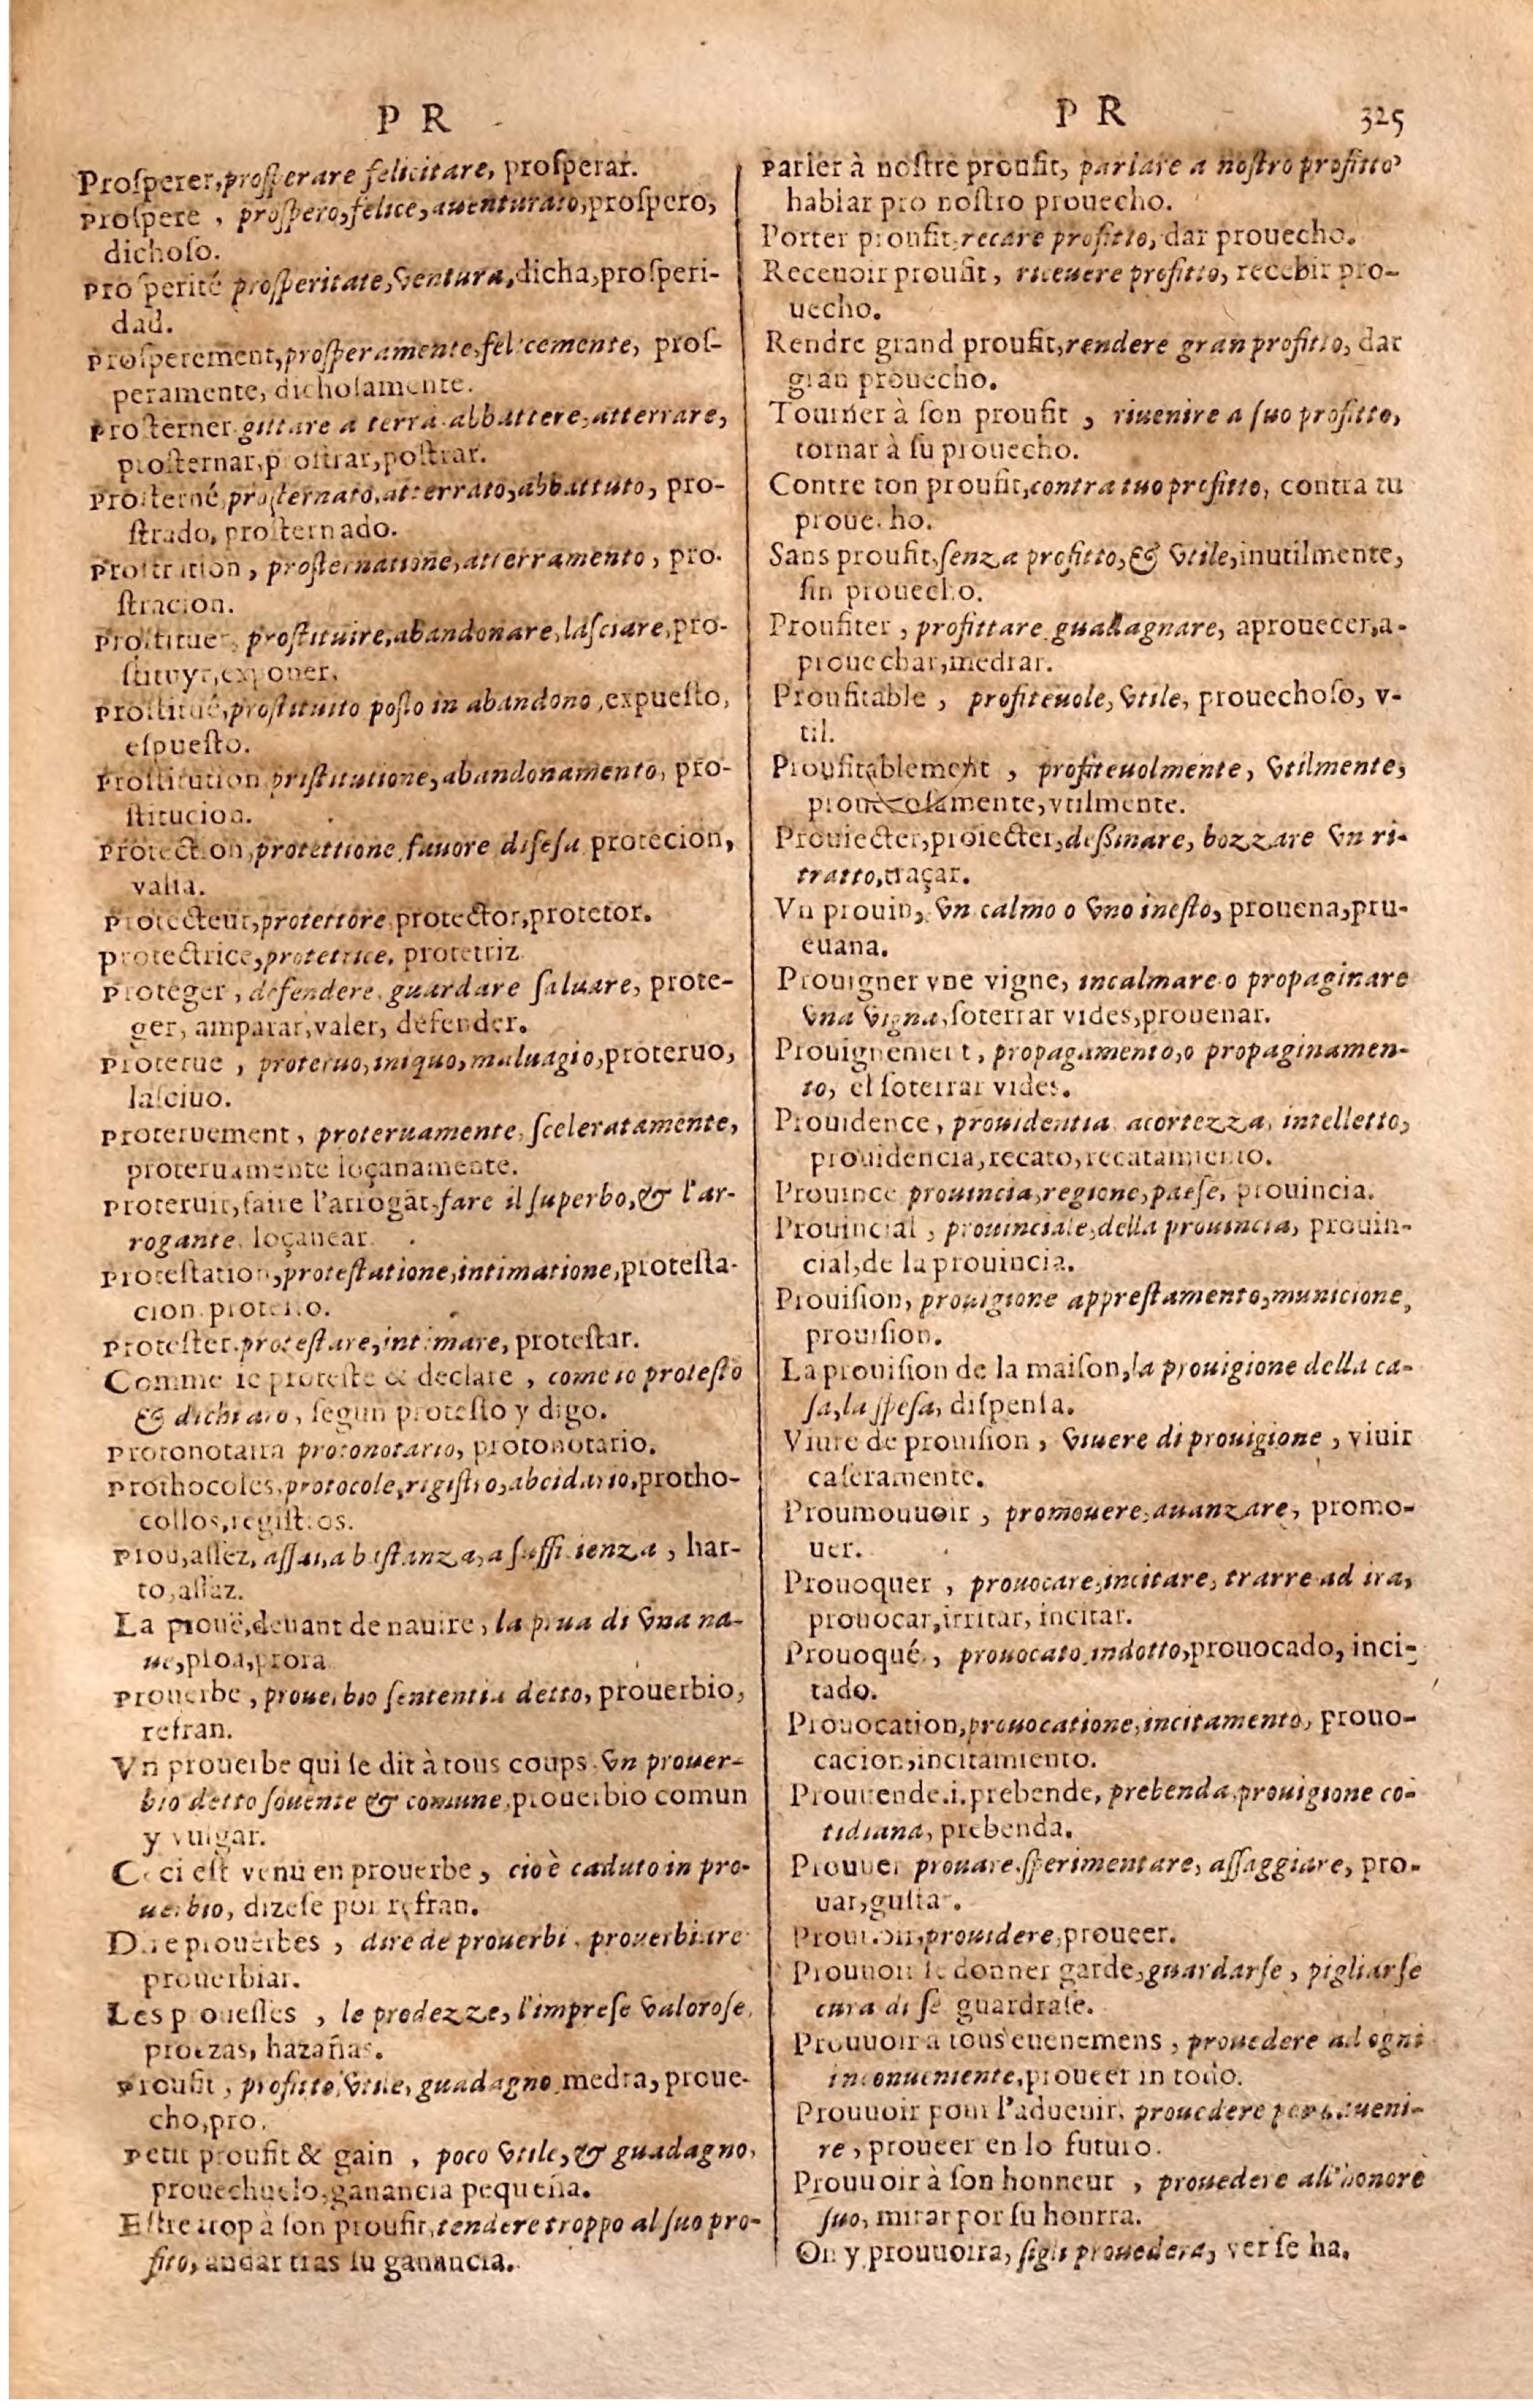 P R
Proſperer, proſperare felicitare, proſperar.
Proſpere, proſpero, felice, auenturato, proſpero,
dichoſo.
Proſperité proſperitate, ventura, dicha, proſperi-
dad.
Proſperement, proſperamente, felicemente, proſ-
peramente, dichoſamente.
Proſterner gittare a terra abbattere, atterrare,
proſternar, proſtrar, poſtrar.
Proſterné, proſternato, atterrato, abbattuto, pro-
ſtrado, proſternado.
Proſtration, proſternatione, atterramento, pro-
ſtracion.
Proſtituer, proſtituire, abandonare, laſciare, pro-
ſtituyr, exponer.
Proſtitué, proſtituito poſto in abandono, expueſto,
eſpueſto.
Proſtitution priſtitutione, abandonamento, pro-
ſtitucion.
Protection, protettione, fauore difeſa protecion,
valia.
Protecteur, protettore, protector, protetor.
Protectrice, protetrice, protetriz
Proteger, defendere, guardare ſaluare, prote-
ger, amparar, valer, defender.
Proterue, proteruo, iniquo, maluagio, proteruo,
laſciuo.
Proteruement, proteruamente, ſceleratamente,
proteruamente loçanamente.
Proteruir, faire l'arrogãt, fare il ſuperbo, & l'ar-
rogante, loçanear.
Proteſtation, proteſtatione, intimatione, proteſta-
cion proteſto.
Proteſter, proteſtare, intimare, proteſtar.
Comme ie proteſte & declare, come io proteſto
& dichiaro, ſegun proteſto y digo.
Protonotaira protonotario, protonotario.
Prothocoles, protocole, rigiſtro, abcidario, protho-
collos, regiſtros.
Prou, aſſez, aſſai, a baſtanza, a ſuffitienza, har-
to, aſſaz.
La prouë, deuant de nauire, la prua di vna na-
ue, ploa, prora
Prouerbe, prouerbio ſententia detto, prouerbio,
refran.
Vn prouerbe qui ſe dit à tous coups. vn prouer-
bio detto ſouente & comune, prouerbio comun
y vulgar.
Ceci eſt venu en prouerbe, cio è caduto in pro-
uerbio, dizeſe por refran.
Dire prouerbes, dire de prouerbi, prouerbiare
prouerbiar.
Les proueſſes, le prodezze, l'impreſe valoroſe,
proezas, hazañas.
Proufit, profitto, vtile, guadagno, medra, proue-
cho, pro.
Petit proufit & gain, poco vtile, & guadagno,
prouechuelo, ganancia pequeña.
Eſtre trop à ſon proufit, tendere troppo al ſuo pro-
fito, andar tras ſu ganancia.
P R 325
Parler à noſtre proufit, parlare a noſtro profitto,
hablar pro noſtro prouecho.
Porter proufit, recare profitto, dar prouecho.
Receuoir proufit, riceuere profitto, recebir pro-
uecho.
Rendre grand proufit, rendere gran profitto, dar
gran prouecho.
Tourner à ſon proufit, riuenire a ſuo profitto,
tornar à ſu prouecho.
Contre ton proufit, contra tuo profitto, contra tu
prouecho.
Sans proufit, ſenza profitto, & vtile, inutilmente,
ſin prouecho.
Proufiter, profittare guadagnare, aprouecer, a-
prouechar, medrar.
Proufitable, profiteuole, vtile, prouechoſo, v-
til.
Proufitablement, profiteuolmente, vtilmente,
prouecoſamente, vtilmente.
Prouiecter, proiecter, deſſinare, bozzare vn ri-
tratto, traçar.
Vn prouin, vn calmo o vno ineſto, prouena, pru-
euana.
Prouigner vne vigne, incalmare o propaginare
vna vigna, ſoterrar vides, prouenar.
Prouignement, propagamento, o propaginamen-
to, el ſoterrar vides.
Prouidence, prouidentia, acortezza, intelletto,
prouidencia, recato, recatamiento.
Prouince prouincia, regione, paeſe, prouincia.
Prouincial, prouinciale, della prouincia, prouin-
cial, de la prouincia.
Prouiſion, prouigione appreſtamento, municione,
prouiſion.
La prouiſion de la maiſon, la prouigione della ca-
ſa, la ſpeſa, diſpenſa.
Viure de prouiſion, viuere di prouigione, viuir
caſeramente.
Proumouuoir, promouere, auanzare, promo-
uer.
Prouoquer, prouocare, incitare, trarre ad ira,
prouocar, irritar, incitar.
Prouoqué, prouocato, indotto, prouocado, inci-
tado.
Prouocation, prouocatione, incitamento, prouo-
cacion, incitamiento.
Prouuende .i. prebende, prebenda, prouigione co-
tidiana, prebenda.
Prouuer prouare, ſperimentare, aſſaggiare, pro-
uar, guſtar.
Prouuoir, prouidere, proueer.
Prouuoir ſe donner garde, guardarſe, pigliarſe
cura di ſe guardraſe.
Prouuoir à tous euenemens, prouedere ad ogni
inconueniente, proueer in todo.
Prouuoir pour l'aduenir, prouedere per l'aueni-
re, proueer en lo futuro.
Prouuoir à ſon honneur, prouedere all'honore
ſuo, mirar por ſu honrra.
On y prouuoira, ſigli prouederà, verſe ha.